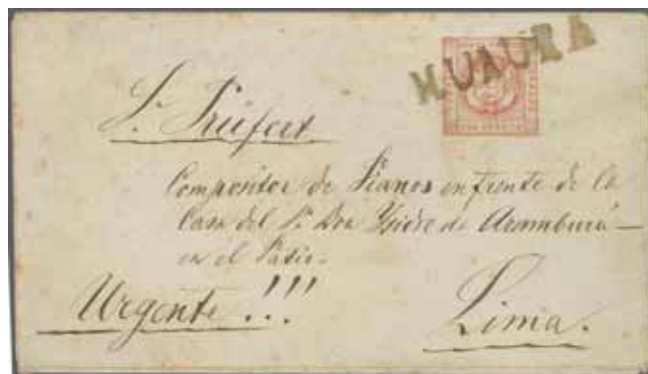 HUAURA
S. Prüfert
Compositor de Pianos en frente de la
Casa del Sr. Don Ysidro de Aramburú
en el
Urgente!!!
Lima.